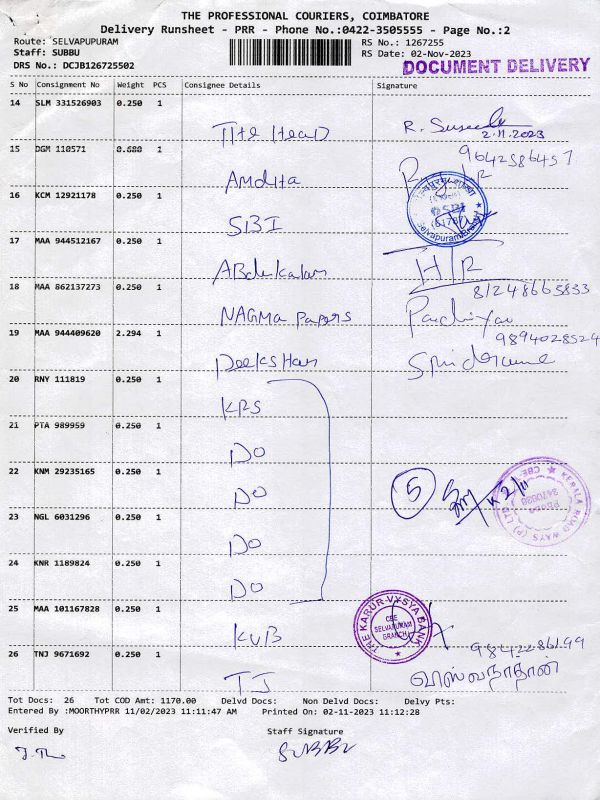 THE PROFESSIONAL COURIERS, COIMBATORE
Delivery Runsheet - PRR - Phone No.:0422-3505555 - Page No.:2
Route: SELVAPUPURAM
RS No.: 1267255
Staff: SUBBU
RS Date: 02-Nov-2023
DRS No.: DCJB126725502
DOCUMENT DELIVERY
S No Consignment No Weight PCS Consignee Details Signature
14 SLM 331526903 0.250 1 R.
2.11.2023
15 DGM 110571 0.680 1 Amdita 9642586457
16 KCM 12921178 0.250 1 SBI
SBI
Selvapuram Branch
17 MAA 944512167 0.250 1 H/R
18 MAA 862137273 0.250 1 NAGMA PAPERS 81248665833
19 MAA 944409620 2.294 1 9894028524
20 RNY 111819 0.250 1 KRS
21 PTA 989959 0.250 1 DO
22 KNM 29235165 0.250 1 DO 5
KERALA ROAD WAYS (P) LTD CBE
23 NGL 6031296 0.250 1 DO
24 KNR 1189824 0.250 1 DO
25 MAA 101167828 0.250 1 KVB
THE KARUR VYSYA BANK
CBE
SELVAPURAM
BRANCH
26 TNJ 9671692 0.250 1 TJ விஸ்வநாதன்
Tot Docs: 26 Tot COD Amt: 1170.00 Delvd Docs: Non Delvd Docs: Delvy Pts:
Entered By :MOORTHYPRR 11/02/2023 11:11:47 AM Printed On: 02-11-2023 11:12:28
Verified By Staff Signature
SUBBU